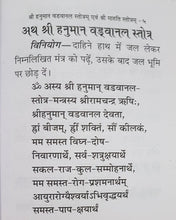 श्री हनुमान वडवानल स्तोत्रम् एवं श्री मारुति स्तोत्रम्
अथ श्री हनुमान् वडवानल स्तोत्र
विनियोग— दाहिने हाथ में जल लेकर
निम्नलिखित मंत्र को पढ़ें, उसके बाद जल भूमि
पर छोड़ दें।
ॐ अस्य श्री हनुमान् वडवानल-
स्तोत्र-मन्त्रस्य श्रीरामचन्द्र ऋषिः,
श्रीहनुमान् वडवानल देवता,
ह्रां बीजम्, ह्रीं शक्तिं, सौं कीलकं,
मम समस्त विघ्न-दोष-
निवारणार्थे, सर्व-शत्रुक्षयार्थे
सकल-राज-कुल-सम्मोहनार्थे,
मम समस्त-रोग-प्रशमनार्थम्
आयुरारोग्यैश्वर्याऽभिवृद्धयर्थं
समस्त-पाप-क्षयार्थं